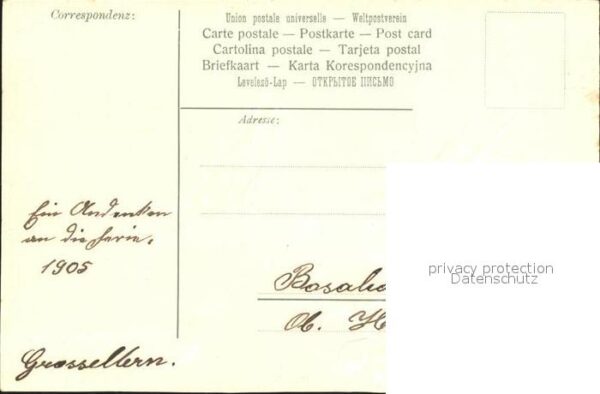 Correspondenz:
Union postale universelle — Weltpostverein
Carte postale — Postkarte — Post card
Cartolina postale — Tarjeta postal
Briefkaart — Karta Korespondencyjna
Levelező-Lap — ОТКРЫТОЕ ПИСЬМО
Adresse:
Ein Andenken
an die Ferie.
1905
Grosseltern.
Ob. H
privacy protection
Datenschutz